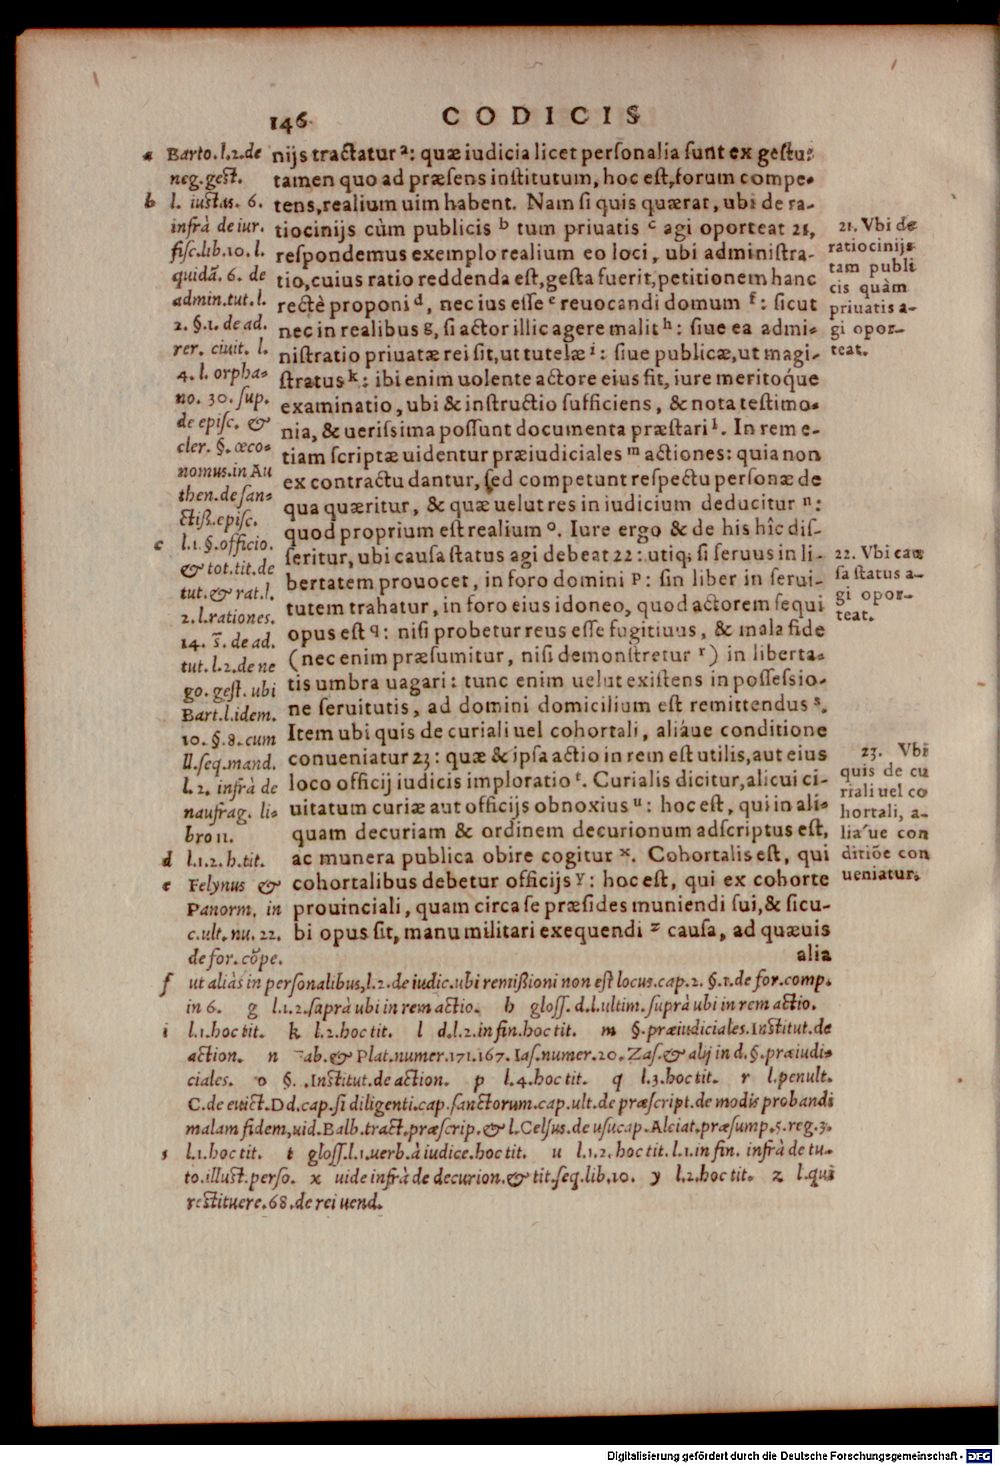 146
CODICIS
nijs tractatur a: quæ iudicia licet personalia sunt ex gestu:
tamen quo ad præsens institutum, hoc est, forum compe-
tens, realium uim habent. Nam si quis quærat, ubi de ra-
tiocinijs cùm publicis b tum priuatis c agi oporteat 21,
respondemus exemplo realium eo loci, ubi administra-
tio, cuius ratio reddenda est, gesta fuerit, petitionem hanc
rectè proponi d, nec ius esse e reuocandi domum f: sicut
nec in realibus g, si actor illic agere malit h: siue ea admi-
nistratio priuatæ rei sit, ut tutelæ i: siue publicæ, ut magi-
stratus k: ibi enim uolente actore eius fit, iure meritoq́ue
examinatio, ubi & instructio sufficiens, & nota testimo-
nia, & uerissima possunt documenta præstari l. In rem e-
tiam scriptæ uidentur præiudiciales m actiones: quia non
ex contractu dantur, sed competunt respectu personæ de
qua quæritur, & quæ uelut res in iudicium deducitur n:
quod proprium est realium o. Iure ergo & de his hîc dis-
seritur, ubi causa status agi debeat 22: utiq; si seruus in li-
bertatem prouocet, in foro domini p: sin liber in serui-
tutem trahatur, in foro eius idoneo, quod actorem sequi
opus est q: nisi probetur reus esse fugitiuus, & mala fide
(nec enim præsumitur, nisi demonstretur r) in liberta-
tis umbra uagari: tunc enim uelut existens in possessio-
ne seruitutis, ad domini domicilium est remittendus s.
Item ubi quis de curiali uel cohortali, aliáue conditione
conueniatur 23: quæ & ipsa actio in rem est utilis, aut eius
loco officij iudicis imploratio t. Curialis dicitur, alicui ci-
uitatum curiæ aut officijs obnoxius u: hoc est, qui in ali-
quam decuriam & ordinem decurionum adscriptus est,
ac munera publica obire cogitur x. Cohortalis est, qui
cohortalibus debetur officijs y: hoc est, qui ex cohorte
prouinciali, quam circa se præsides muniendi sui, & sicu-
bi opus sit, manu militari exequendi z causa, ad quæuis
alia
a Barto. l. 2. de
neg. gest.
b l. iustas. 6.
infrà de iur.
fisc. lib. 10. l.
quidā. 6. de
admin. tut. l.
2. §. 1. de ad.
rer. ciuit. l.
4. l. orpha-
no. 30. sup.
de episc. &
cler. §. œco-
nomus. in Au
then. de san-
ctiß. episc.
c l. 1. §. officio.
& tot. tit. de
tut. & rat. l.
2. l. rationes.
14. s̄. de ad.
tut. l. 2. de ne
go. gest. ubi
Bart. l. idem.
10. §. 8. cum
ll. seq. mand.
l. 2. infrà de
naufrag. li-
bro 11.
d l. 1. 2. h. tit.
e Felynus &
Panorm. in
c. ult. nu. 22.
de for. cōpe.
21. Vbi de
ratiocinijs
tam publi
cis quàm
priuatis a-
gi opor-
teat.
22. Vbi cau
sa status a-
gi opor-
teat.
23. Vbi
quis de cu
riali uel co
hortali, a-
liáue con
ditiōe con
ueniatur.
f ut aliàs in personalibus, l. 2. de iudic. ubi remißioni non est locus. cap. 2. §. 1. de for. comp.
in 6. g l. 1. 2. suprà ubi in rem actio. h gloss. d. l. ultim. suprà ubi in rem actio.
i l. 1. hoc tit. k l. 2. hoc tit. l d. l. 2. in fin. hoc tit. m §. præiudiciales. Institut. de
action. n ab. & Plat. numer. 171. 167. Ias. numer. 20. Zas. & alij in d. §. præiudi-
ciales. o §. . Institut. de action. p l. 4. hoc tit. q l. 3. hoc tit. r l. penult.
C. de euict. Dd. cap. si diligenti. cap. sanctorum. cap. ult. de præscript. de modis probandi
malam fidem, uid. Balb. tract. præscrip. & l. Celsus. de usucap. Alciat. præsump. 5. reg. 3.
s l. 1. hoc tit. t gloss. l. 1. uerb. à iudice. hoc tit. u l. 1. 2. hoc tit. l. 1. in fin. infrà de tu-
to. illust. perso. x uide infrà de decurion. & tit. seq. lib. 10. y l. 2. hoc tit. z l. qui
restituere. 68. de rei uend.
Digitalisierung gefördert durch die Deutsche Forschungsgemeinschaft - DFG